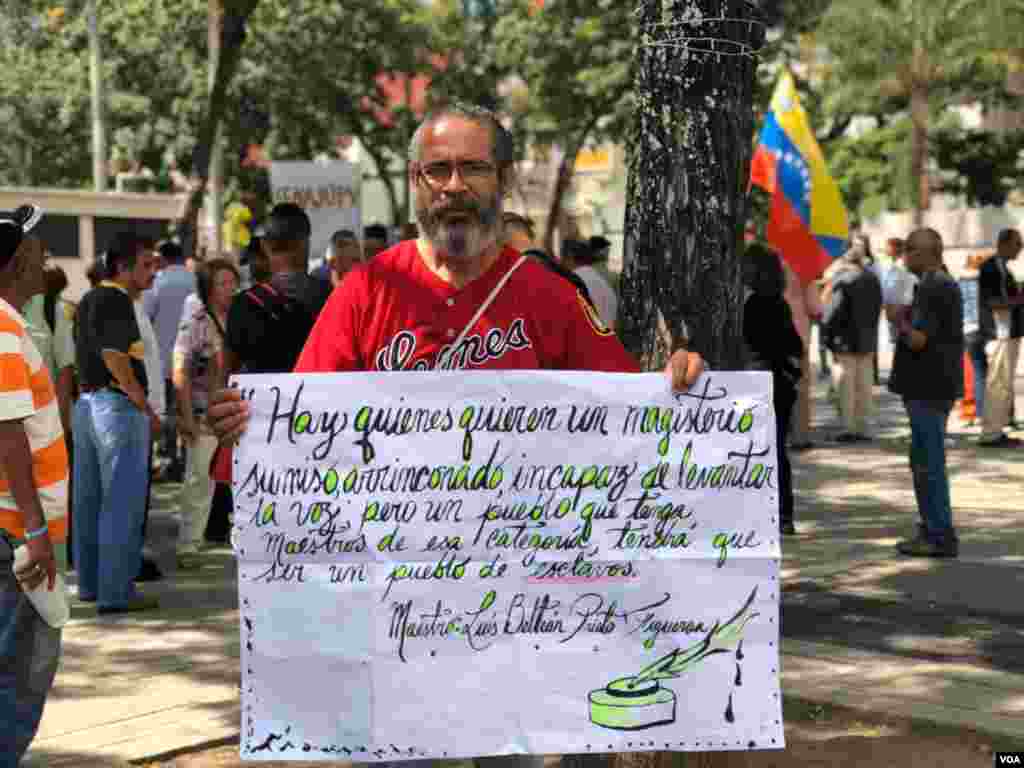 "Hay quienes quieren un magisterio
sumiso, arrinconado, incapaz de levantar
la voz, pero un pueblo que tenga
maestros de esa categoría, tendrá que
ser un pueblo de esclavos.
Maestro: Luis Beltrán Prieto Figueroa
Leones
VOA